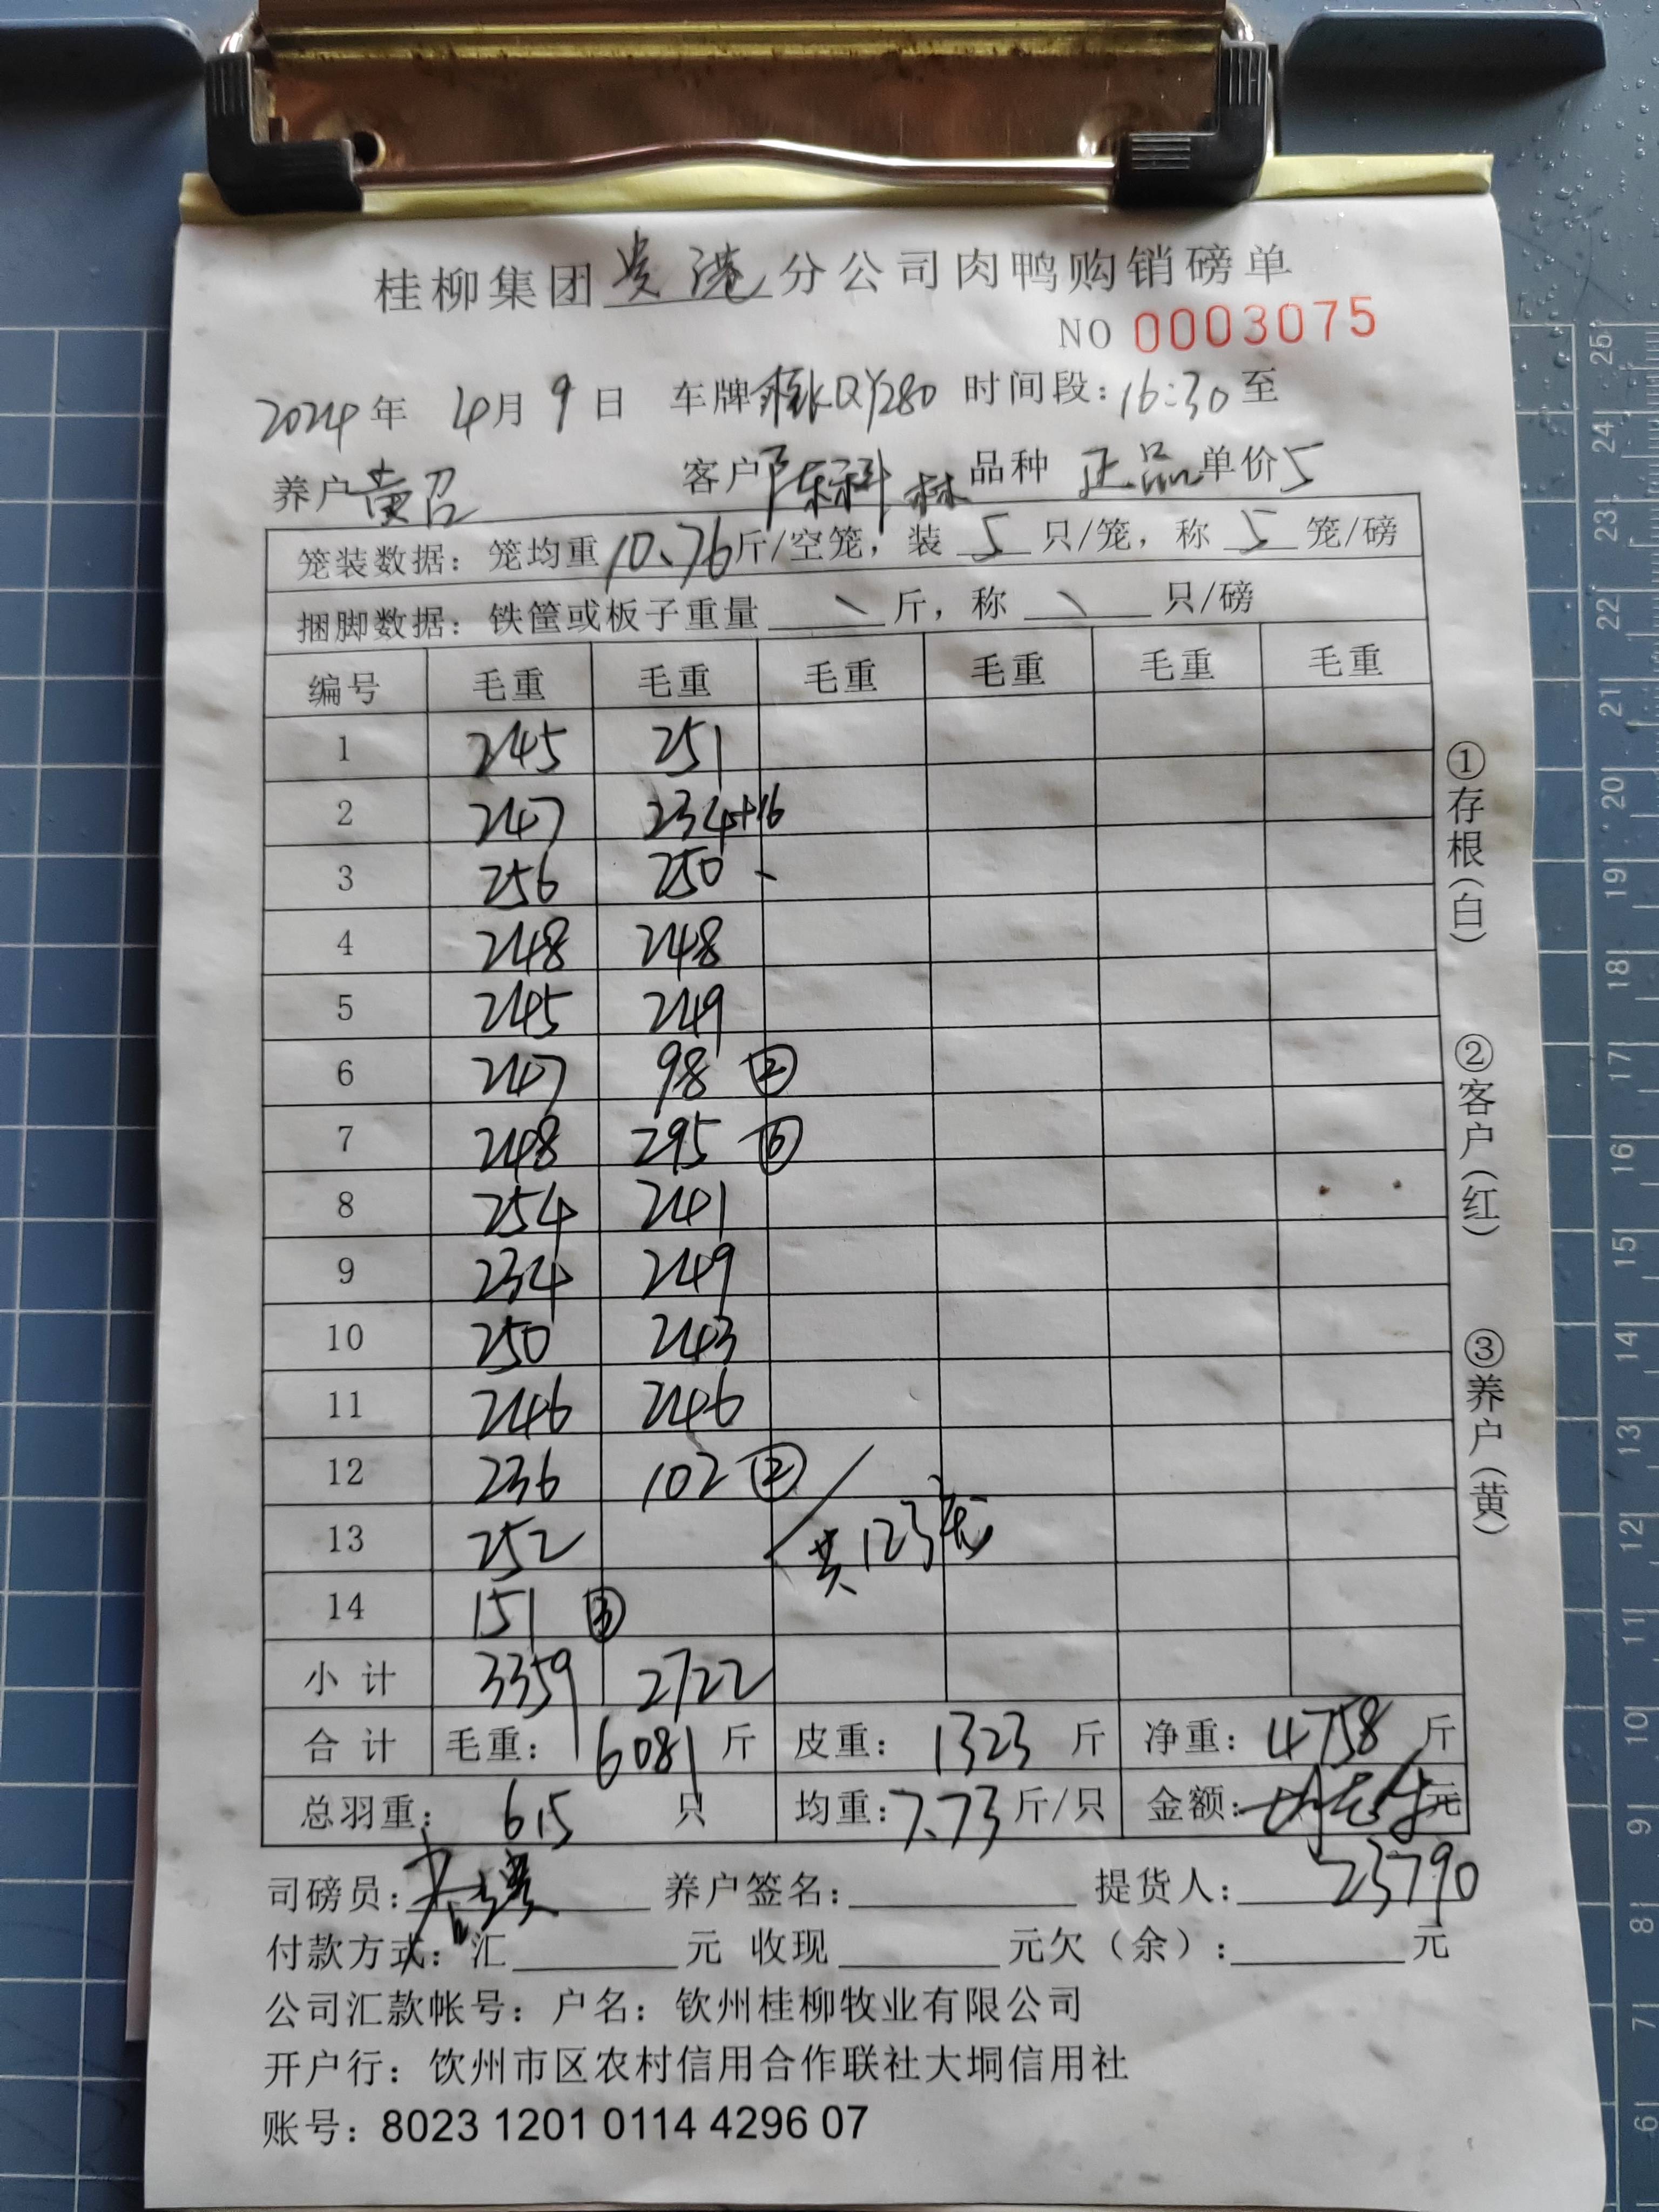 桂柳集团贵港分公司肉鸭购销磅单
NO 0003075
2024年 4月9日 车牌 QY280 时间段：16:30至
养户黄召 客户陈科林 品种 正品 单价5
笼装数据：笼均重10.76斤/空笼，装 5 只/笼，称 5 笼/磅
捆脚数据：铁筐或板子重量 \ 斤，称 \ 只/磅
编号 毛重 毛重 毛重 毛重 毛重 毛重
1 245 251
2 247 234+16
3 256 250
4 248 248
5 245 249
6 247 98 ②
7 248 295 ⑥
8 254 241
9 234 249
10 250 243
11 246 246
12 236 102 ②
13 252 共123笼
14 151 ③
小计 3359 2722
合计 毛重：6081斤 皮重：1323斤 净重：4758斤
总羽重：615只 均重：7.73斤/只 金额： 元
司磅员： 养户签名： 提货人： 23790
付款方式：汇 元 收现 元欠（余）： 元
公司汇款帐号：户名：钦州桂柳牧业有限公司
开户行：饮州市区农村信用合作联社大垌信用社
账号：8023 1201 0114 4296 07
①存根（白）
②客户（红）
③养户（黄）
25
24
23
22
21
20
19
18
17
16
15
14
13
12
11
10
9
8
7
6